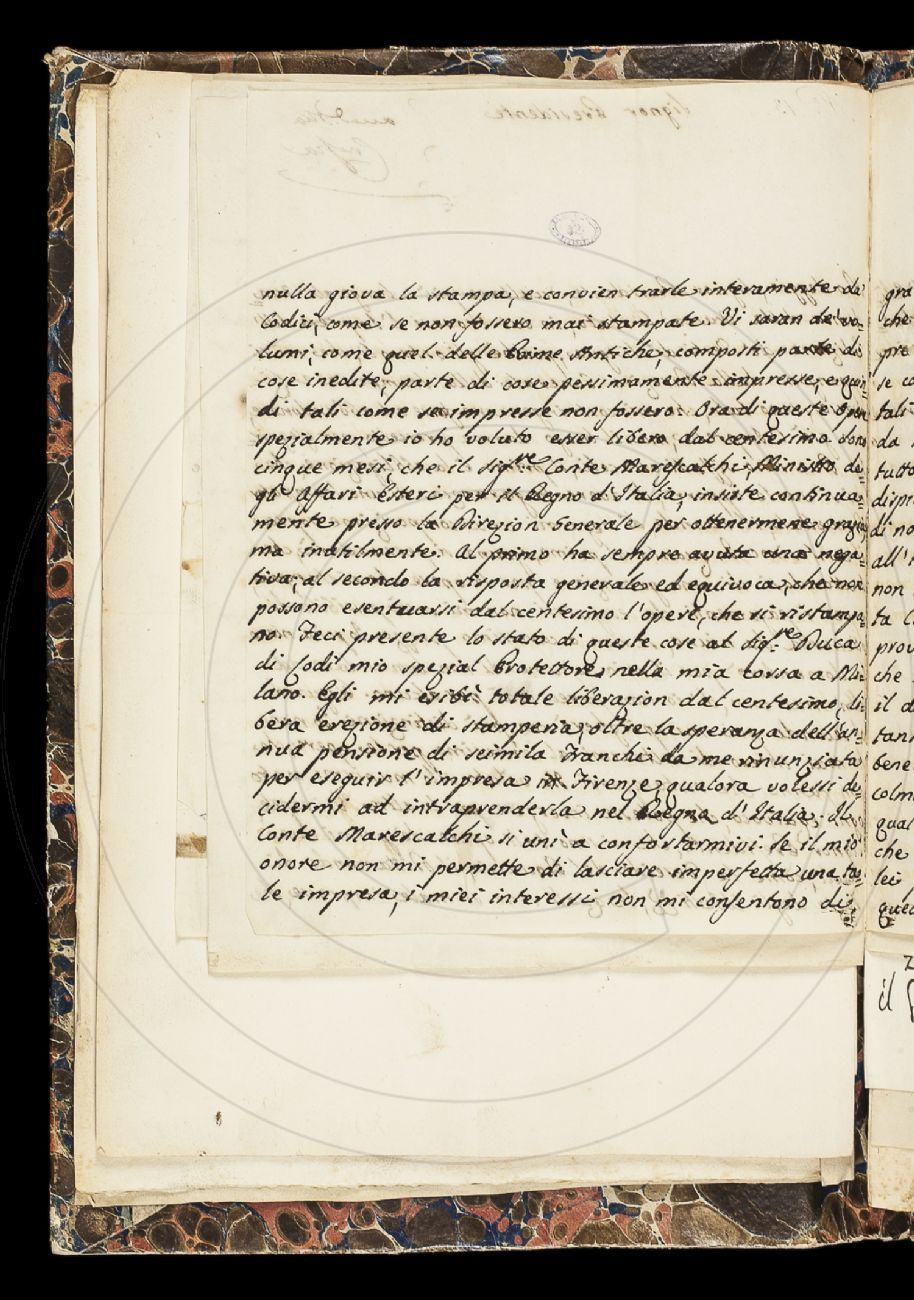 nulla giova la stampa, e convien trarle interamente da
Codici, come se non fossero mai stampate. Vi saran de' vo=
lumi, come quel delle Rime Antiche, composti parte di
cose inedite, parte di cose pessimamente impresse, e quin
di tali come se impresse non fossero. Ora di queste Opere
spezialmente io ho voluto esser libero dal centesimo. Sono
cinque mesi, che il Sig.re Conte Marescalchi, Ministro de=
gli Affari Esteri per il Regno d'Italia, insiste continua=
mente presso la Direzion Generale per ottenermene grazia,
ma inutilmente. Al primo ha sempre avuta una nega=
tiva; al secondo la risposta generale ed equivoca, che non
possono esentuarsi dal centesimo l'opere, che si ristampa=
no. Feci presente lo stato di queste cose al Sig.re Duca
di Lodi mio spezial Protettore, nella mia corsa a Mi=
lano. Egli mi esibì totale liberazion dal centesimo, li=
bera erezione di stamperia, oltre la speranza dell'an=
nua pensione di seimila Franchi da me rinunziata
per eseguir l'impresa in Firenze, qualora volessi de=
cidermi ad intraprenderla nel Regno d'Italia. Il
Conte Marescalchi si unì a confortarmivi. Se il mio
onore non mi permette di lasciare imperfetta una ta=
le impresa, i miei interessi non mi consentono di
gra
che
pre
se co
tali
da
tutto
dispi
di no
all'
non
ta
prov
che
il d
tan
bene
colm
qual
che
lei
quel
il